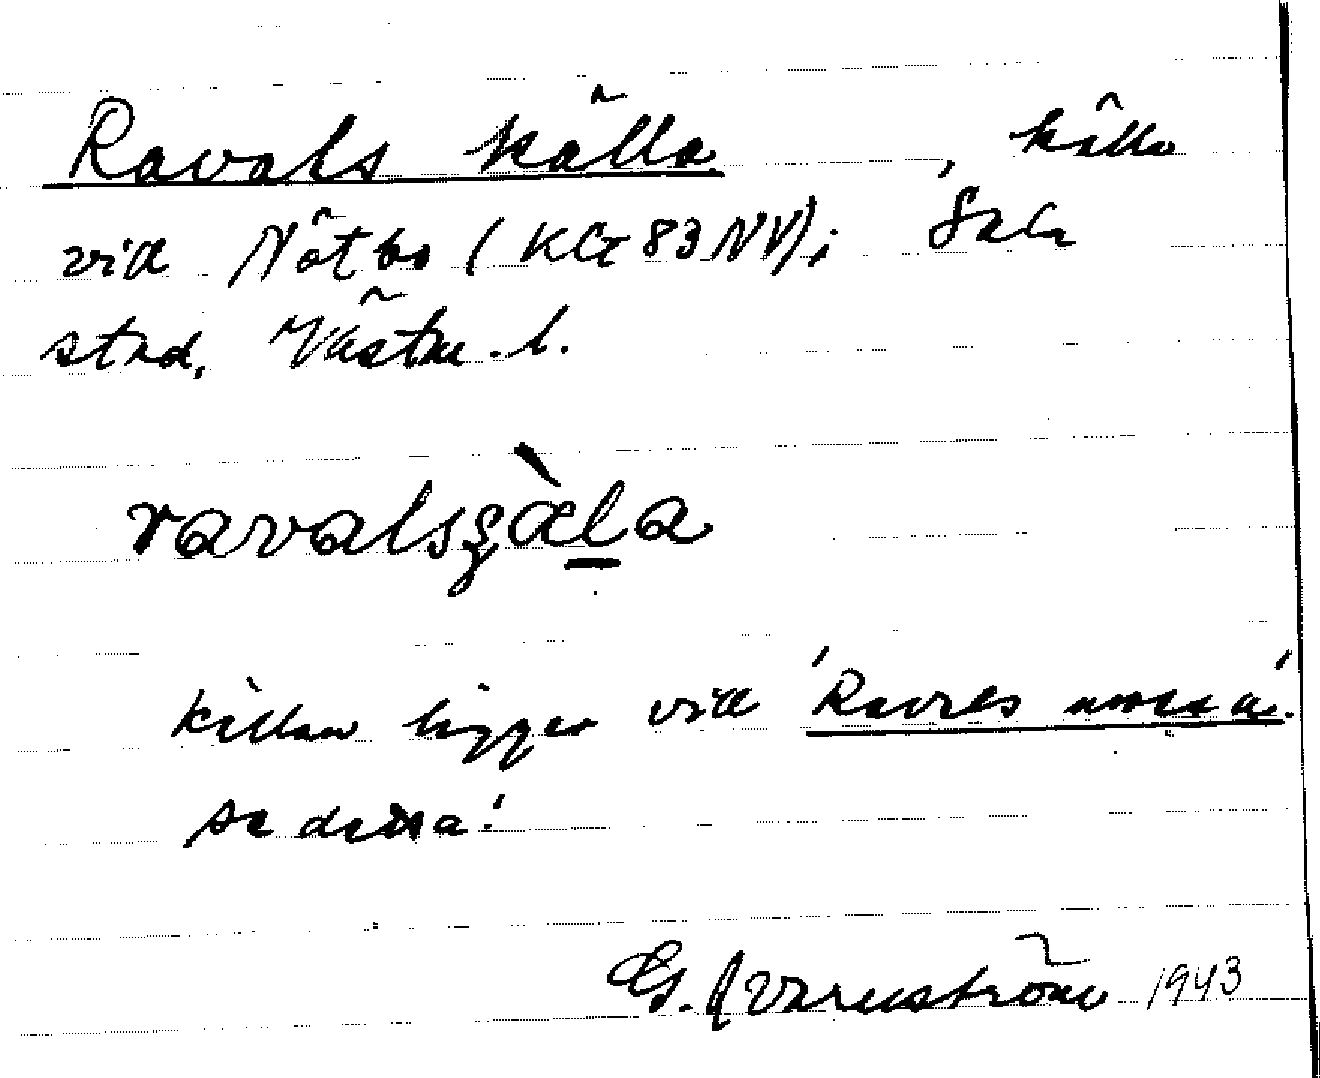 Ravals källa, källa
vid Nötbo (KG 83 NV); Sala
stad, Västm. l.
ravalsçàla
Källan ligger vid 'Ravales mossa'.
se denna!
G. Qvarnström 1943